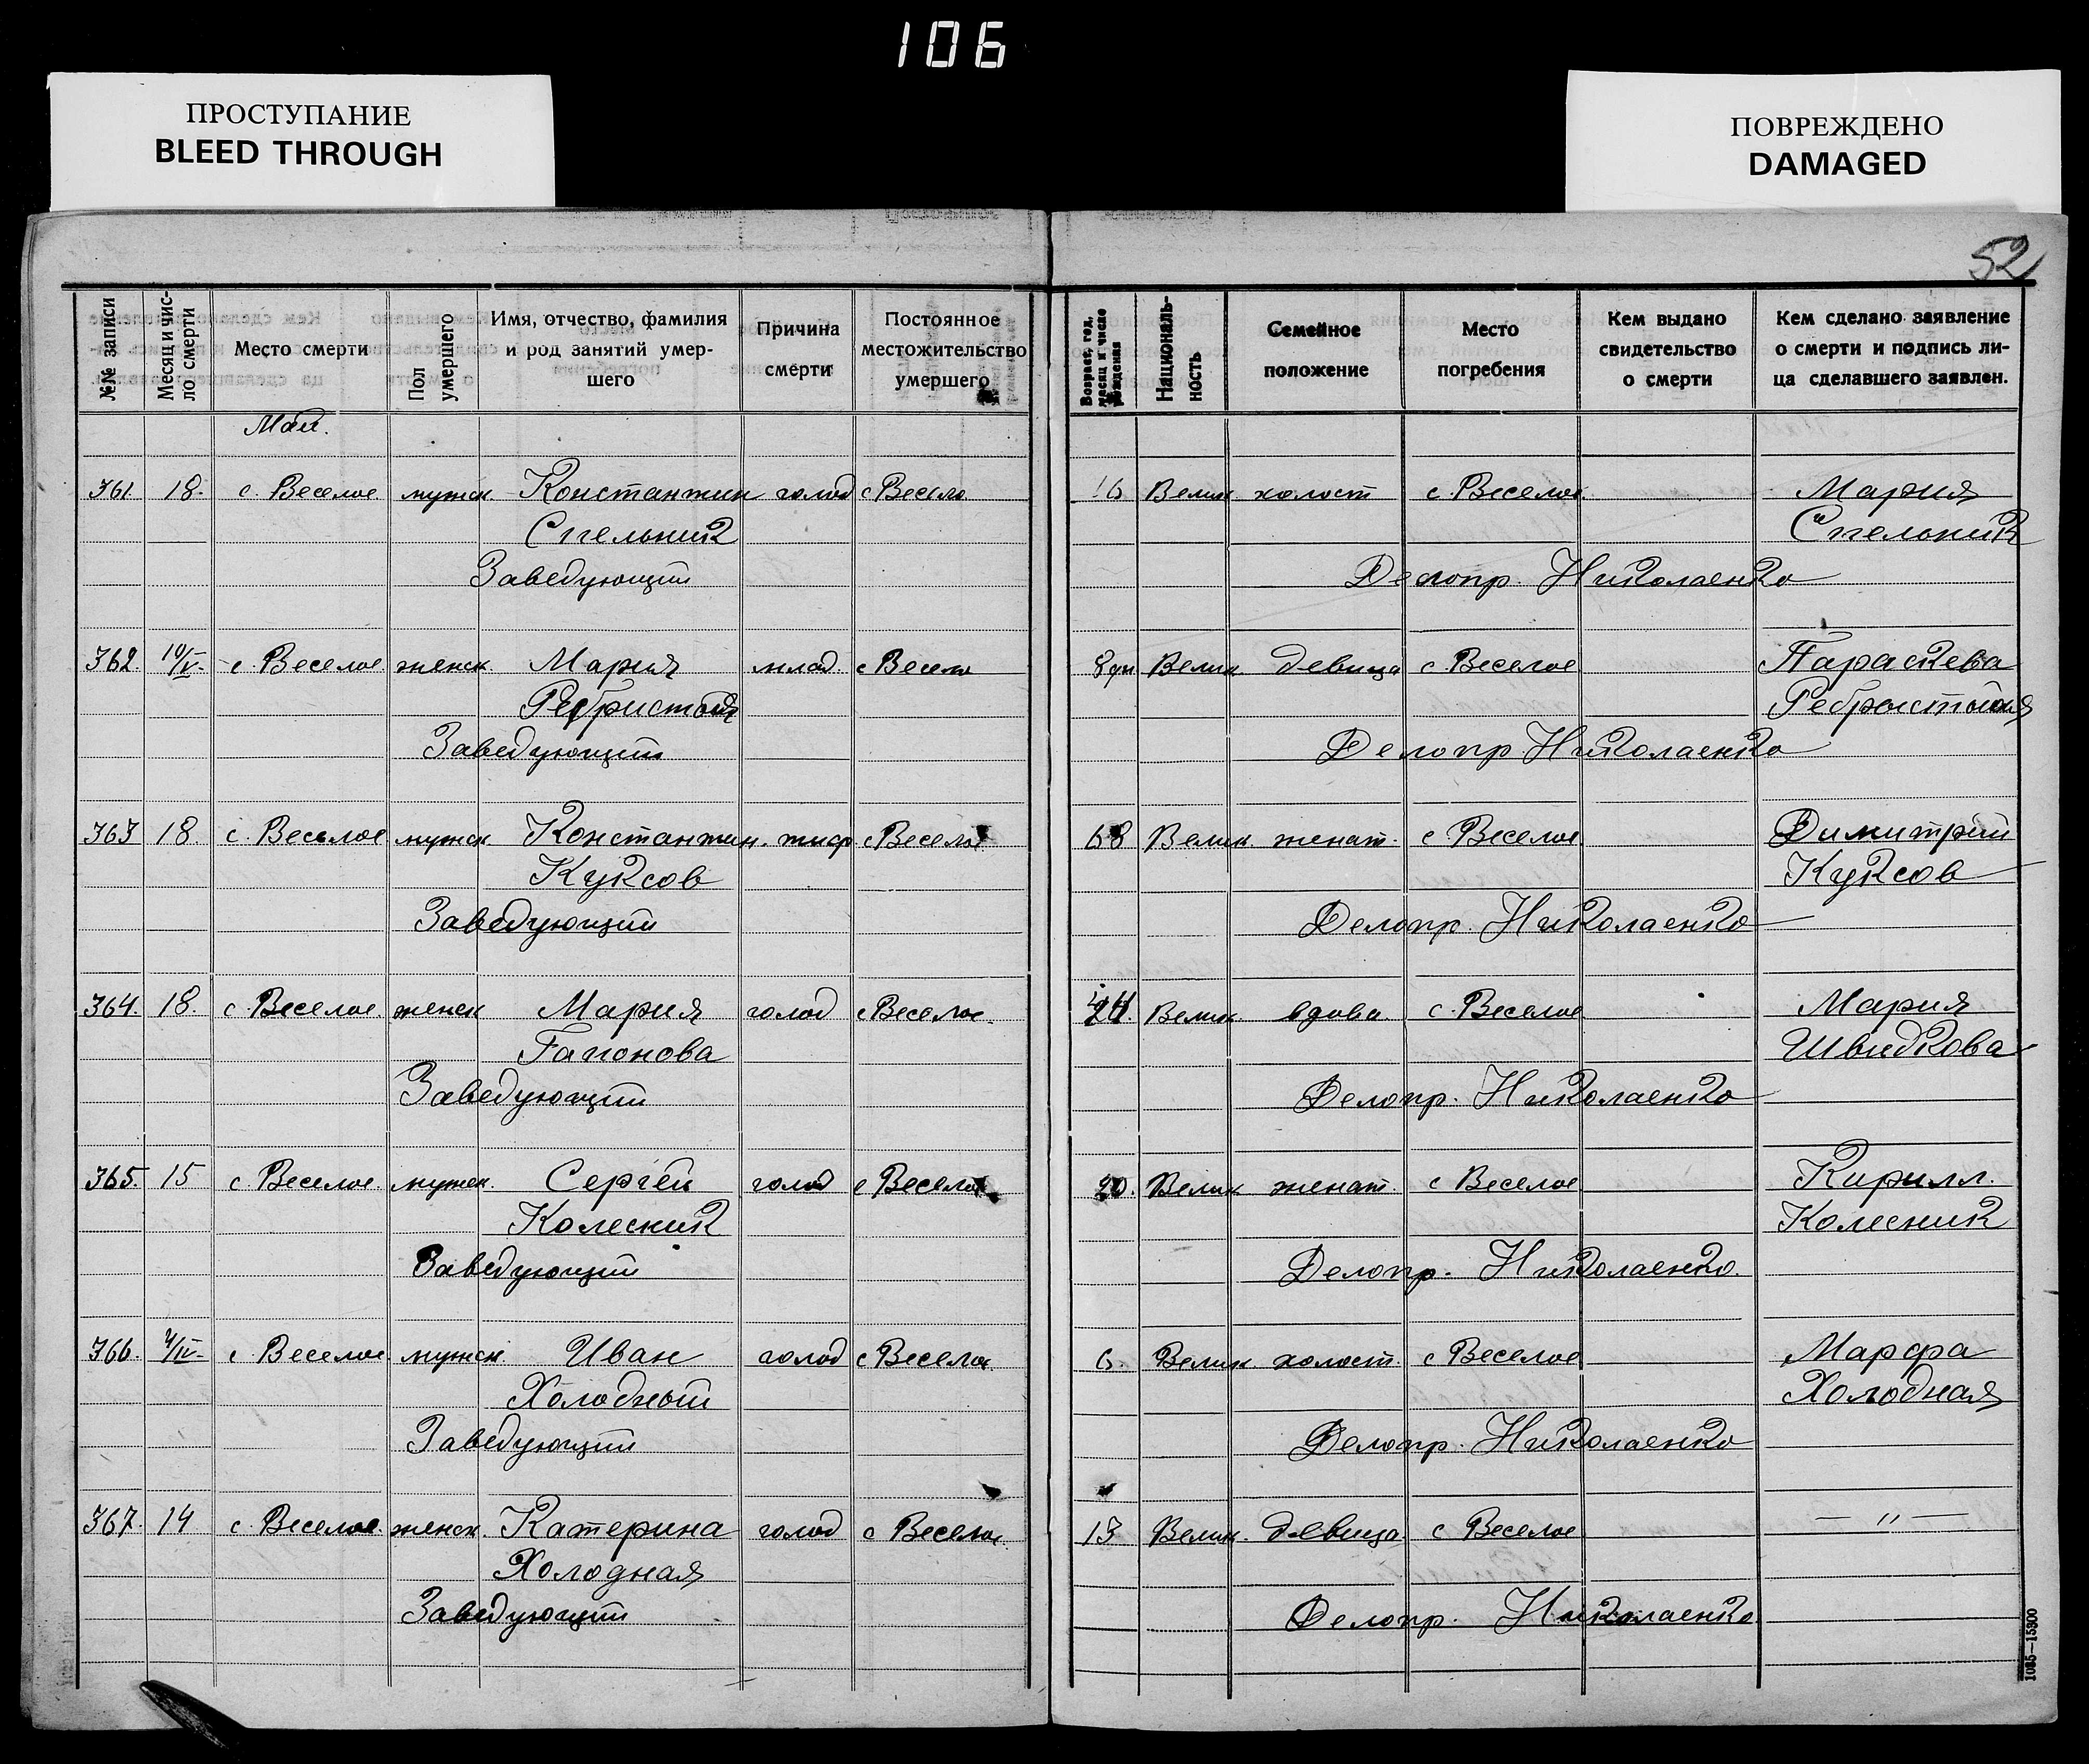 106
ПРОСТУПАНИЕ
BLEED THROUGH
ПОВРЕЖДЕНО
DAMAGED
52
№№ записи
Месяц и чис-
ло смерти
Место смерти
Пол
умершего
Имя, отчество, фамилия
и род занятий умер-
шего
Причина
смерти
Постоянное
местожительство
умершего
Возраст, год,
месяц и число
рождения
Националь-
ность
Семейное
положение
Место
погребения
Кем выдано
свидетельство
о смерти
Кем сделано заявление
о смерти и подпись ли-
ца сделавшего заявлен.
Май.
361. 18. с. Веселое мужск. Константин голод с Весело 16 Велик холост с. Веселое Мария
Спельник Спельник
Заведующий Делопр. Николаенко
362. 10/V- с. Веселое женск. Мария млад. с Весело 8дн Велик. девица с. Веселое Параскева
Ребристая Ребрыстая
Заведующий Делопр. Николаенко
363 18. с. Веселое мужск. Константин. тиф с Веселое 68 Велик женат. с Веселое Димитрий
Куксов Куксов
Заведующий Делопр. Николаенко
364. 18. с. Веселое женск Мария голод с Веселое. Велик. вдова. с. Веселое Мария
Гапонова Швидкова
Заведующий Делопр. Николаенко
365. 15 с. Веселое мужск. Сергей голод с Веселое 20. Велик женат. с Веселое Кирилл.
Колесник Колесник
Заведующий Делопр. Николаенко.
366. 4/IV- с Веселое мужск. Иван голод с Веселое. 6. Велик холост. с Веселое Марфа
Холодный Холодная
Заведующий Делопр. Николаенко
367. 14 с. Веселое женск. Катерина голод с Веселое. 13 Велик. девица. с Веселое — „ —
Холодная
Заведующий Делопр. Николаенко
1085—15300